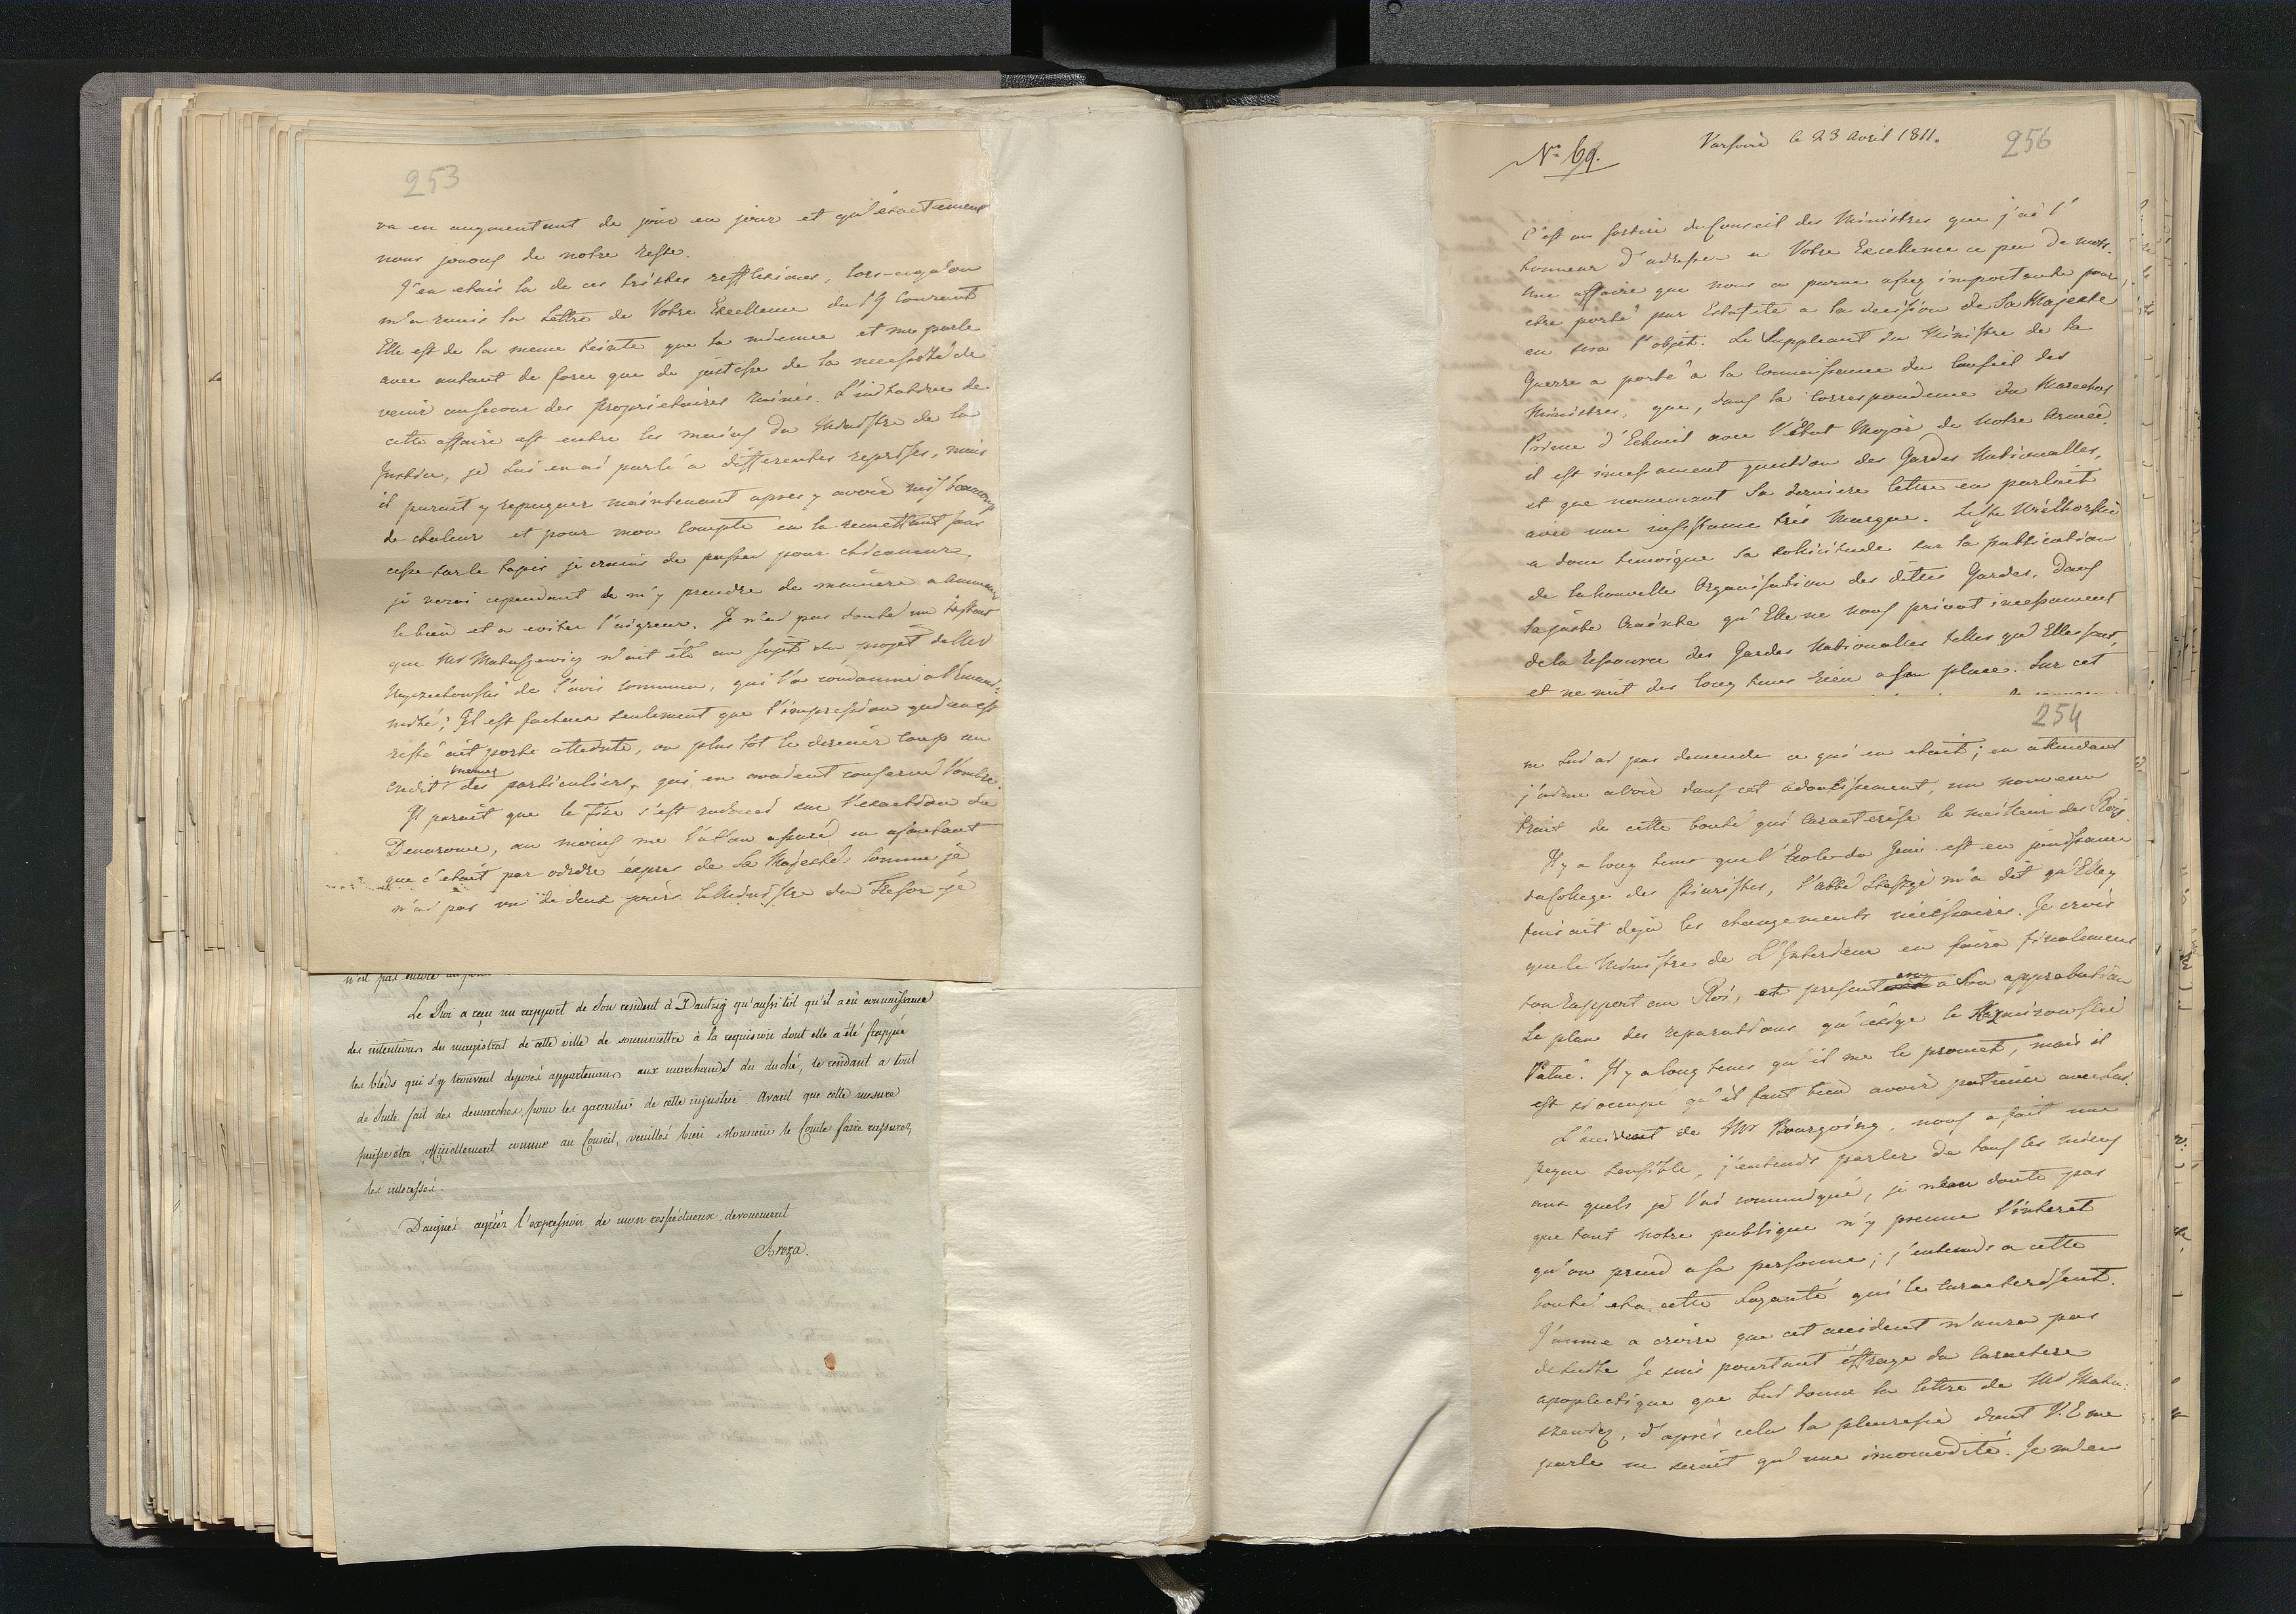 253
va en augmentant de jour en jour et qu'exactement
nous jouons de notre reste.
J'en etais la de ces tristes refflexions, lors-ceqa'on
m'a remis la Lettre de Votre Excellence du 19 Courrent
Elle est de la meme teinte que la mienne et me parle
avec autant de force que de justesse de la necessité de
venir ausecour des proprietaires ruinés. L'initiative de
cette affaire est entre les mains du Ministre de la
Justice, je lui en ai parlé a differentes reprises, mais
il parait y repugner maintenant apres y avoir mis beaucoup
de chaleur et pour mon compte en la remettant sans
cesse sur le tapis je crains de passer pour chicaneur,
je verai cependant de m'y prendre de maniere a
le bien et a eviter l'aigreur. Je n'ai pas douté un instant
que Mr Matuszewicz n'ait été au sujet du projet de Mr
de l'avis commun, qui l'a condamné a l'unani-
mité; Il est facheux seulement que l'impression qui en est
resté ait porté atteinte, ou plus tot le dernier coup au
credit memes des particuliers, qui en avaient conservé l'ombre.
Il parait que le fisc s'est radouci sur l'exaction du
au moins me l'at'on assuré, en ajoutant
que c'etait par ordre éxpres de Sa Majesté. Comme je
n'ai pas vu de deux jours le Ministre du Tresor je
n'est pas encore
Le Roi a reçu un rapport de Son resident à Dantzig qu'aussi tôt qu'il a eû connaissance
des intentions du magistrat de cette ville de soummettre à la requision dont elle a été frappée
les bleds qui s'y trouvent deposé appartenans aux marchands du duché, le residant a tout
de Suite fait des demarches pour les garantir de cette injustice. Avant que cette mesure
puisse etre officiellement connue au Conseil, veuilléz bien Monsieur le Comte faire rassurer
les interessés.
Daignéz agréer l'expression de mon respectueux devouement
Breza.
No 69.
Varsovie le 23 Avril 1811.
256
C'est au sortir du Conseil des Ministres que j'ai l'
honneur d'adresser a Votre Excellence ce peu de mots.
Une affaire que nous a parue assez importante pour
etre porté par Estafete a la decision de Sa Majesté
en sera l'objet. Le Suppleant du Ministre de la
Guerre a porté a la connaissance du Conseil des
Ministres, que, dans la Correspondence du Marechal
Prince d'Eckmül avec l'État Major de notre Armée,
il est incessament question des Gardes Nationalles,
et que nommement Sa derniere lettre en parlait
avec une insistance très marqué. Le Sr Wielhorski
a donc temoigné Sa solicitude sur la publication
de la nouvelle Organisation des dittes Gardes, dans
la juste crainte qu'Elle ne nous privat incessament
de la ressource des Gardes Nationalles telles qu'Elles sont,
et ne mit des long tems rien a sa place. Sur cet
254
ne lui ai pas demendé ce qui en etait; en attendant
j'aime a voir dans cet adoucissement, un nouveau
trait de cette bonté qui caracterise le meilleur des Rois
Il y a long tems que l'Ecole du Genie est en jouissance
du College des Piaristes, l'abbé Staszic m'a dit qu'Elle y
faisait dejà les changements nécéssaires. Je crois
que le Ministre de L'Interieur en faira finalement
son Rapport au Roi, et presentera a Son approbation
le plan des reparations qu'éxige le Kazimirowski
Palac. Il y a long tems qu'il me le promet, mais il
est si occupé qu'il faut bien avoir patience avec lui.
L'accident de Mr Bourgoing, nous a fait une
peyne sensible, j'entends parler de tous les miens
aux quels je l'ai communiqué, je n'en doute pas
que tout notre publique n'y prenne l'interet
qu'on prend a sa personne; j'entends a cette
bonté et a cette Loyauté qui le caracterisent.
J'aime a croire que cet accident n'aura pas
de suite je suis pourtant éffrayé du caractere
apoplectique que lui donne la lettre de Mr Matu-
szewicz, d'après cela la pleuresie dont V. E me
parle ne serait qu'une incomodité. Je m'en